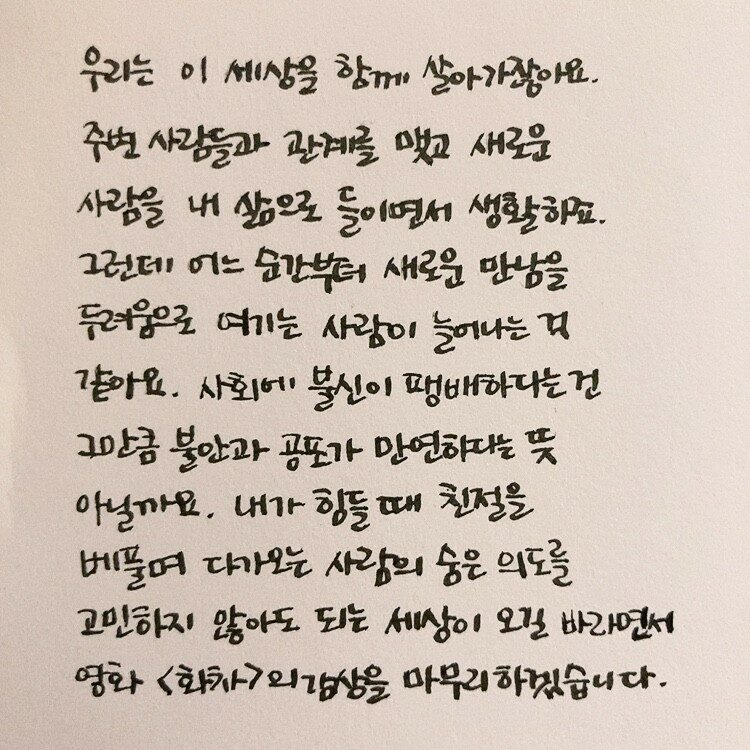 우리는 이 세상을 함께 살아가잖아요.
주변 사람들과 관계를 맺고 새로운
사람을 내 삶으로 들이면서 생활하죠.
그런데 어느 순간부터 새로운 만남을
두려움으로 여기는 사람이 늘어나는 것
같아요. 사회에 불신이 팽배하다는 건
그만큼 불안과 공포가 만연하다는 뜻
아닐까요. 내가 힘들 때 친절을
베풀며 다가오는 사람의 숨은 의도를
고민하지 않아도 되는 세상이 오길 바라면서
영화 <화차>의 감상을 마무리하겠습니다.